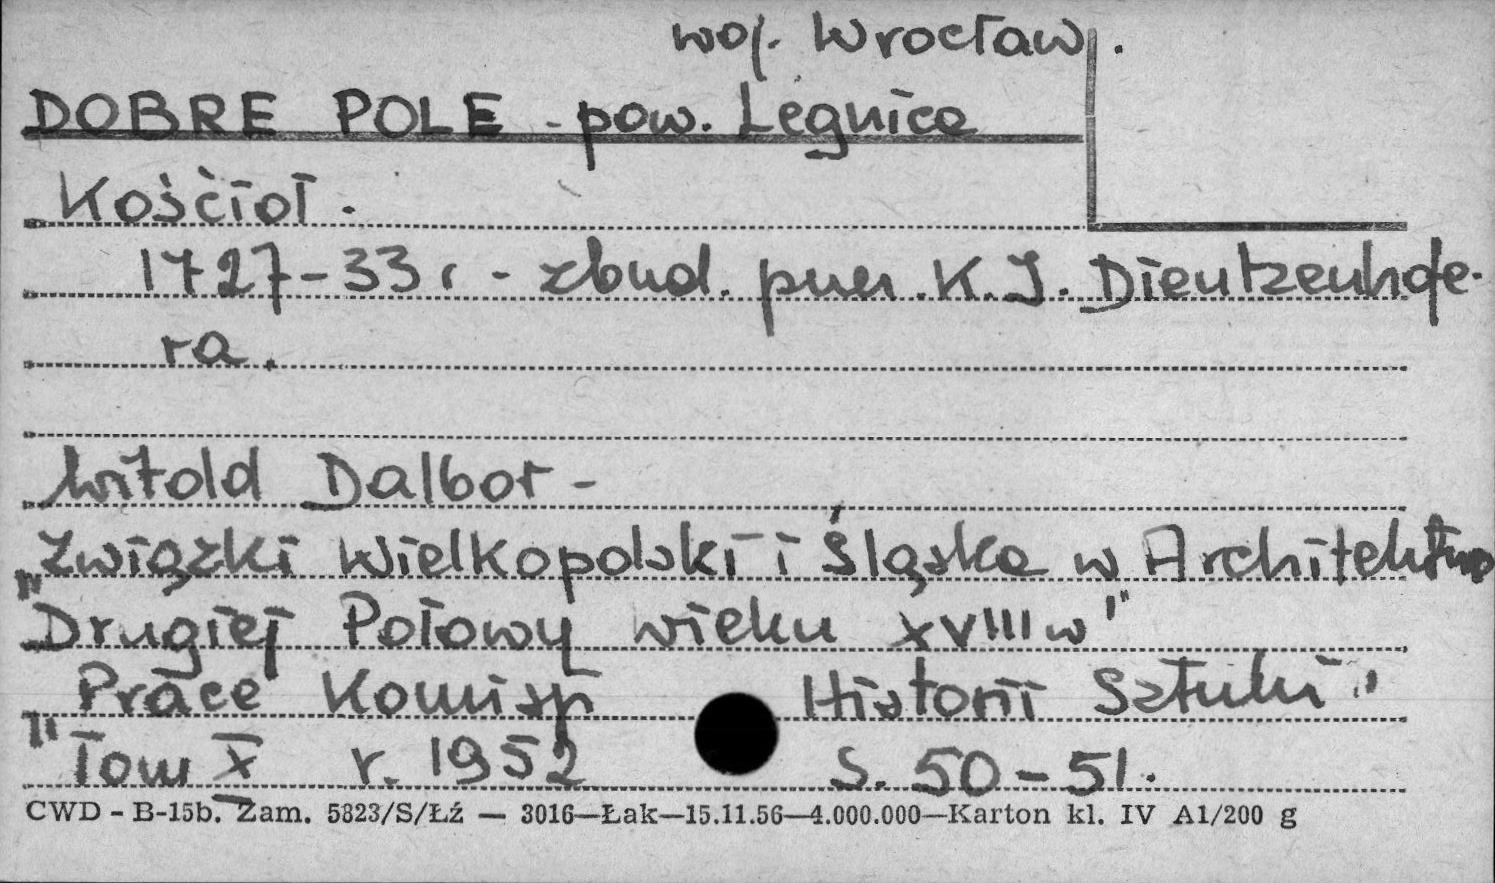 woj. Wrocław.
DOBRE POLE - pow. Legnica
Kościół.
1727-33 r. - zbud. przez K. I. Dientzenhofe-
ra.
Witold Dalbor -
"Związki Wielkopolski i Śląska w Architekturze
Drugiej Połowy wieku XVIII w"
"Prace Komisji Historii Sztuki"
Tom X r. 1952 s. 50-51.
CWD - B-15b. Zam. 5823/S/Łź — 3016—Łak—15.11.56—4.000.000—Karton kl. IV A1/200 g